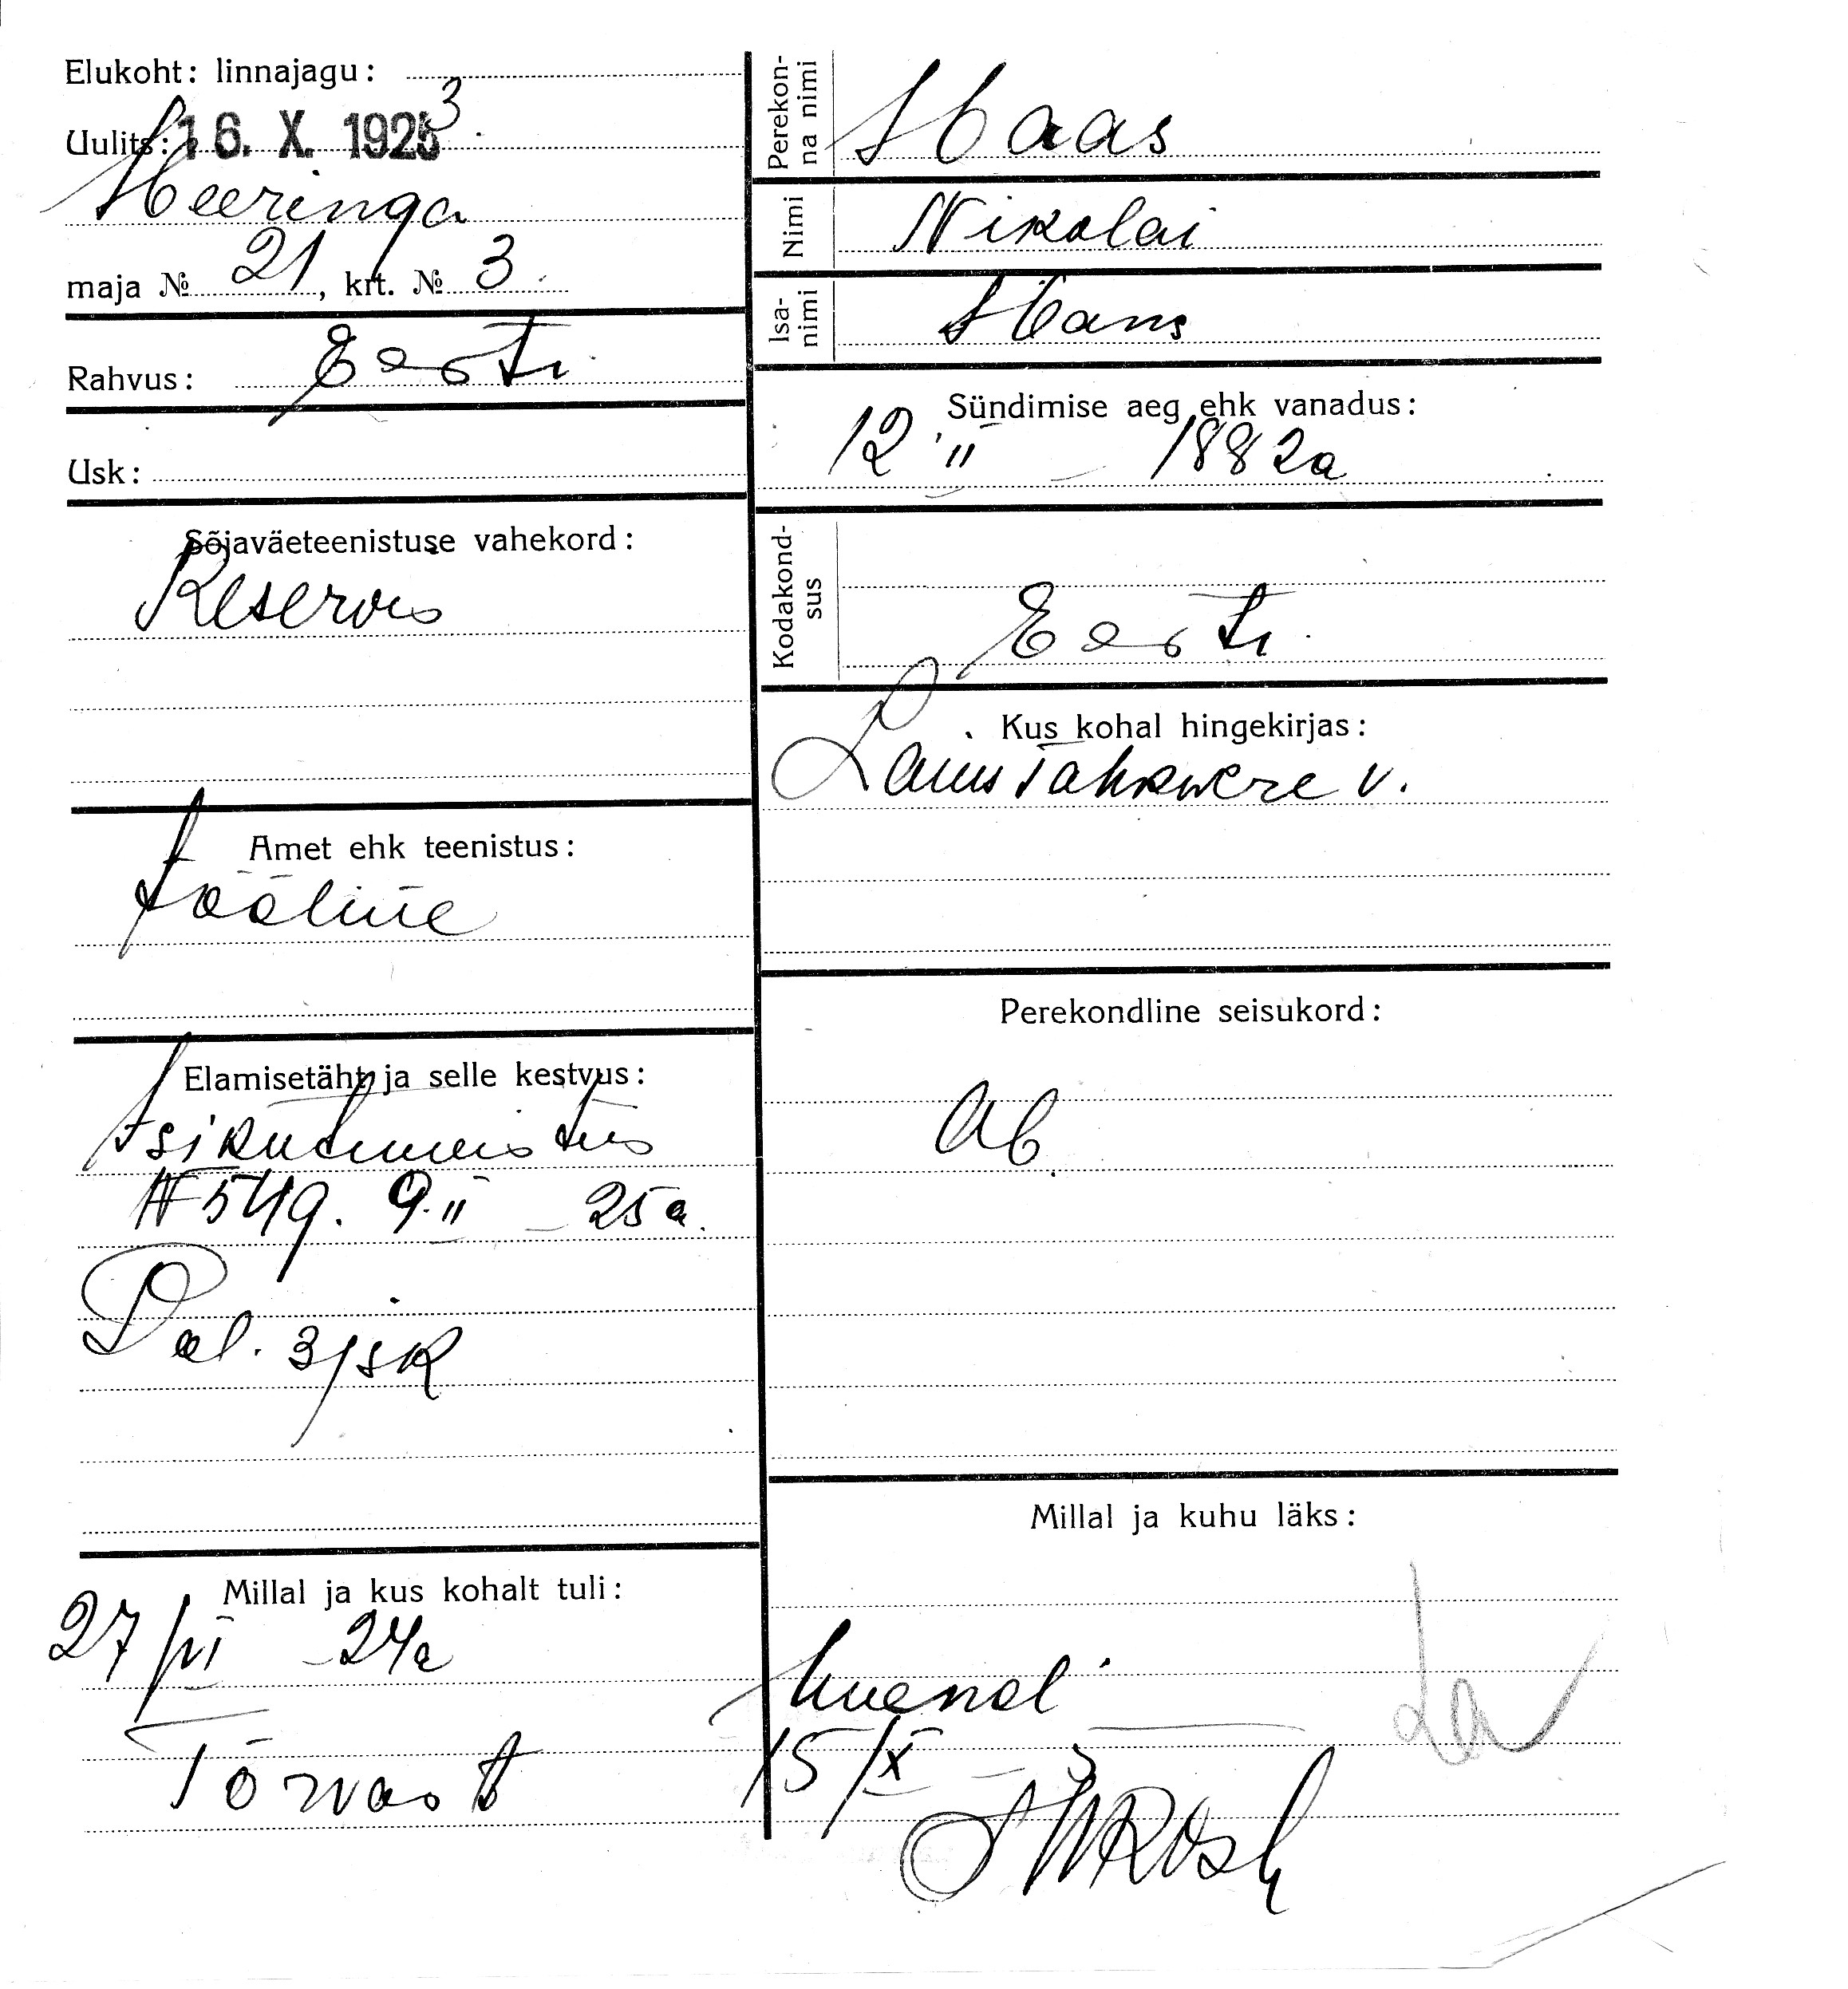 Elukoht: linnajagu:
Uulits: 16. X. 1925 3.
Heeringa
maja № 21, krt. № 3.
Rahvus: Eesti
Usk:
Sõjaväeteenistuse vahekord:
Reservis
Amet ehk teenistus:
tööline
Elamisetäht ja selle kestvus:
Isikutunnistus
N 549. 9.II - 25 a.
Pol. 3 jsk
Millal ja kus kohalt tuli:
27/VI - 24a
Tõrvast
Perekonna nimi Haas
Nimi Nikolai
Isanimi Hans
Sündimise aeg ehk vanadus:
12 II - 1882a
Kodakondsus
Eesti
Kus kohal hingekirjas:
Tähkwere v.
Perekondline seisukord:
Ab.
Millal ja kuhu läks:
15/X -